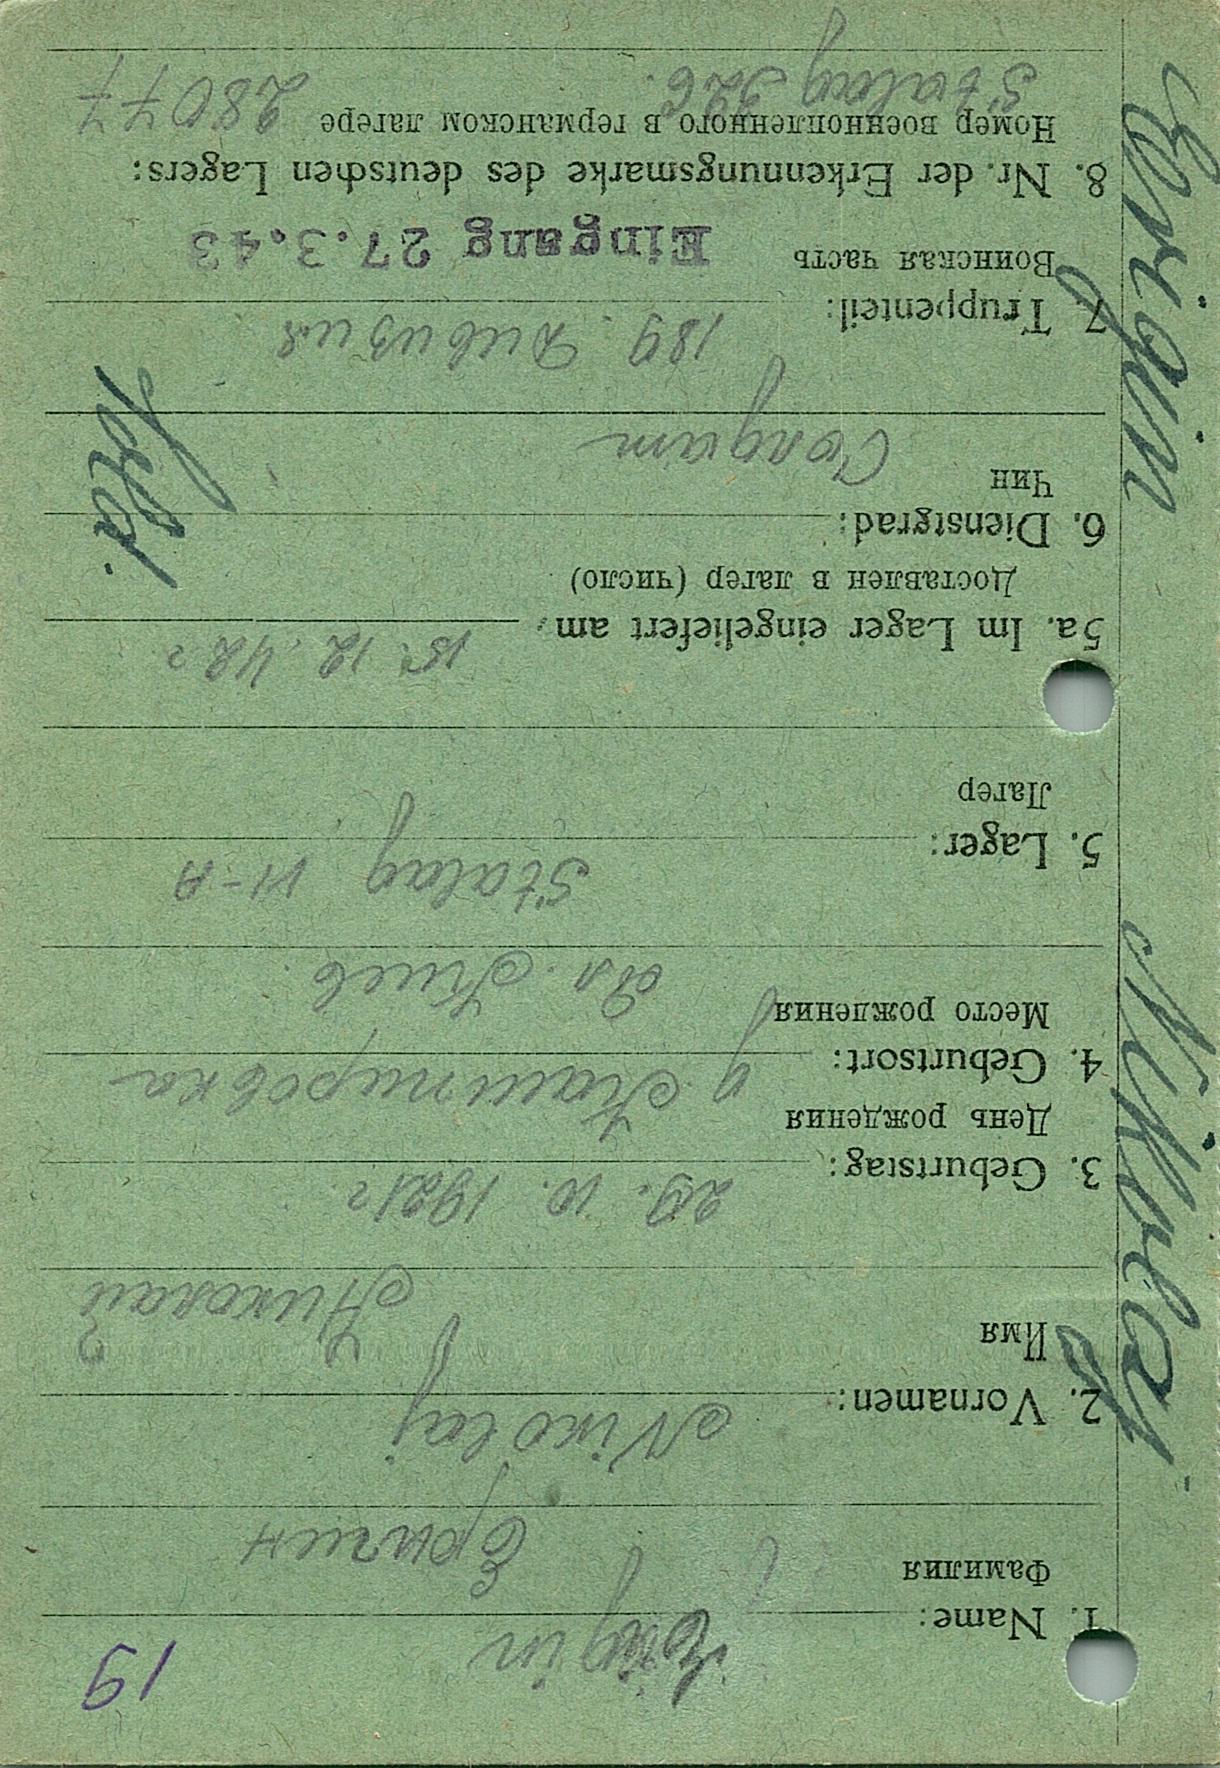 19
1. Name: Erigin
Фамилия Еригин
2. Vornamen: Nikolaj
Имя Николай
3. Geburtstag: 29. 10. 1921 г
День рождения
4. Geburtsort: д. Каштировка
Место рождения обл. Киев.
5. Lager: Stalag VI-A
Лагер
5a. Im Lager eingeliefert am: 15. 12. 42 г
Доставлен в лагер (число)
Sold.
6. Dienstgrad:
Чин Солдат
7. Truppenteil: 189. Дивизия
Воинская часть Eingang 27.3.43
8. Nr. der Erkennungsmarke des deutschen Lagers:
Номер военнопленного в германском лагере 28077
Stalag 326.
Erigin
Nikolaj